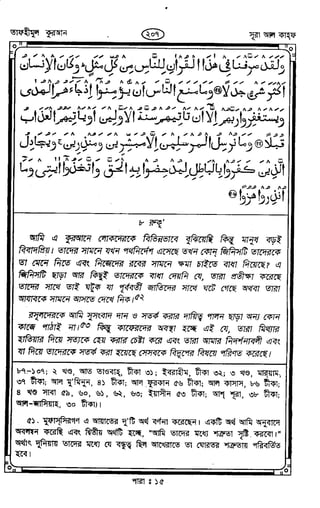 তাফহীমুল কুরআন ২০৭ সূরা আল কাহফ
وَلَقَدْ صَرَّفْنَا فِي هٰذَا الْقُرْاٰنِ لِلنَّاسِ مِنْ كُلِّ مَثَلٍ ؕ وَكَانَ الْاِنْسَانُ
اَكْثَرَ شَيْءٍ جَدَلًا ﴿٥٤﴾ وَمَا مَنَعَ النَّاسَ اَنْ يُّؤْمِنُوْٓا اِذْ جَآءَهُمُ الْهُدٰى
وَيَسْتَغْفِرُوْا رَبَّهُمْ اِلَّآ اَنْ تَاْتِيَهُمْ سُنَّةُ الْاَوَّلِيْنَ اَوْ يَاْتِيَهُمُ الْعَذَابُ
قُبُلًا ﴿٥٥﴾ وَمَا نُرْسِلُ الْمُرْسَلِيْنَ اِلَّا مُبَشِّرِيْنَ وَمُنْذِرِيْنَ ۚ وَيُجَادِلُ
الَّذِيْنَ كَفَرُوْا بِالْبَاطِلِ لِيُدْحِضُوْا بِهِ الْحَقَّ وَاتَّخَذُوْٓا اٰيٰتِيْ وَمَآ
اُنْذِرُوْا هُزُوًا ﴿٥٦﴾
৮ রুকূ'
আমি এ কুরআনে লোকদেরকে বিভিন্নভাবে বুঝিয়েছি কিন্তু মানুষ বড়ই
বিবাদপ্রিয়। তাদের সামনে যখন পথনির্দেশ এসেছে তখন কোন্ জিনিসটি তাদেরকে
তা মেনে নিতে এবং নিজেদের রবের সামনে ক্ষমা চাইতে বাধা দিয়েছে? এ
জিনিসটি ছাড়া আর কিছুই তাদেরকে বাধা দেয়নি যে, তারা প্রতীক্ষা করেছে
তাদের সাথে তাই ঘটুক যা পূর্ববর্তী জাতিদের সাথে ঘটে গেছে অথবা তারা
আযাবকে সামনে আসতে দেখে নিক।৫২
রসূলদেরকে আমি সুসংবাদ দান ও সতর্ক করার দায়িত্ব পালন ছাড়া অন্য কোন
কাজে পাঠাই না।৫৩ কিন্তু কাফেরদের অবস্থা হচ্ছে এই যে, তারা মিথ্যার
হাতিয়ার দিয়ে সত্যকে হেয় করার চেষ্টা করে এবং তারা আমার নিদর্শনাবলী এবং
যা দিয়ে তাদেরকে সতর্ক করা হয়েছে সেসবকে বিদ্রূপের বিষয়ে পরিণত করেছে।
৮৭-১০৭; ২ খণ্ড, আত তাওবাহ, টীকা ৩১; ইবরাহীম, টীকা ৩২; ৩ খণ্ড, মারয়াম,
৩৭ টীকা; আল মু'মিনূন, ৪১ টীকা; আল ফুরকান ৫৬ টীকা; আল কাসাস, ৮৬ টীকা;
৪ খণ্ড সাবা ৫৯, ৬০, ৬১, ৬২, ৬৩; ইয়াসীন ৫৩ টীকা; আশ্ শূরা, ৩৮ টীকা;
আল-জাসিয়াহ, ৩০ টীকা।।
৫১. মুফাস্সিরগণ এ আয়াতের দু'টি অর্থ বর্ণনা করেছেন। একটি অর্থ আমি অনুবাদে
অবলম্বন করেছি এবং দ্বিতীয় অর্থটি হচ্ছে, "আমি তাদের মধ্যে শত্রুতা সৃষ্টি করবো।"
অর্থাৎ দুনিয়ায় তাদের মধ্যে যে বন্ধুত্ব ছিল আখেরাতে তা ঘোরতর শত্রুতায় পরিবর্তিত
হবে।
পারা ঃ ১৫